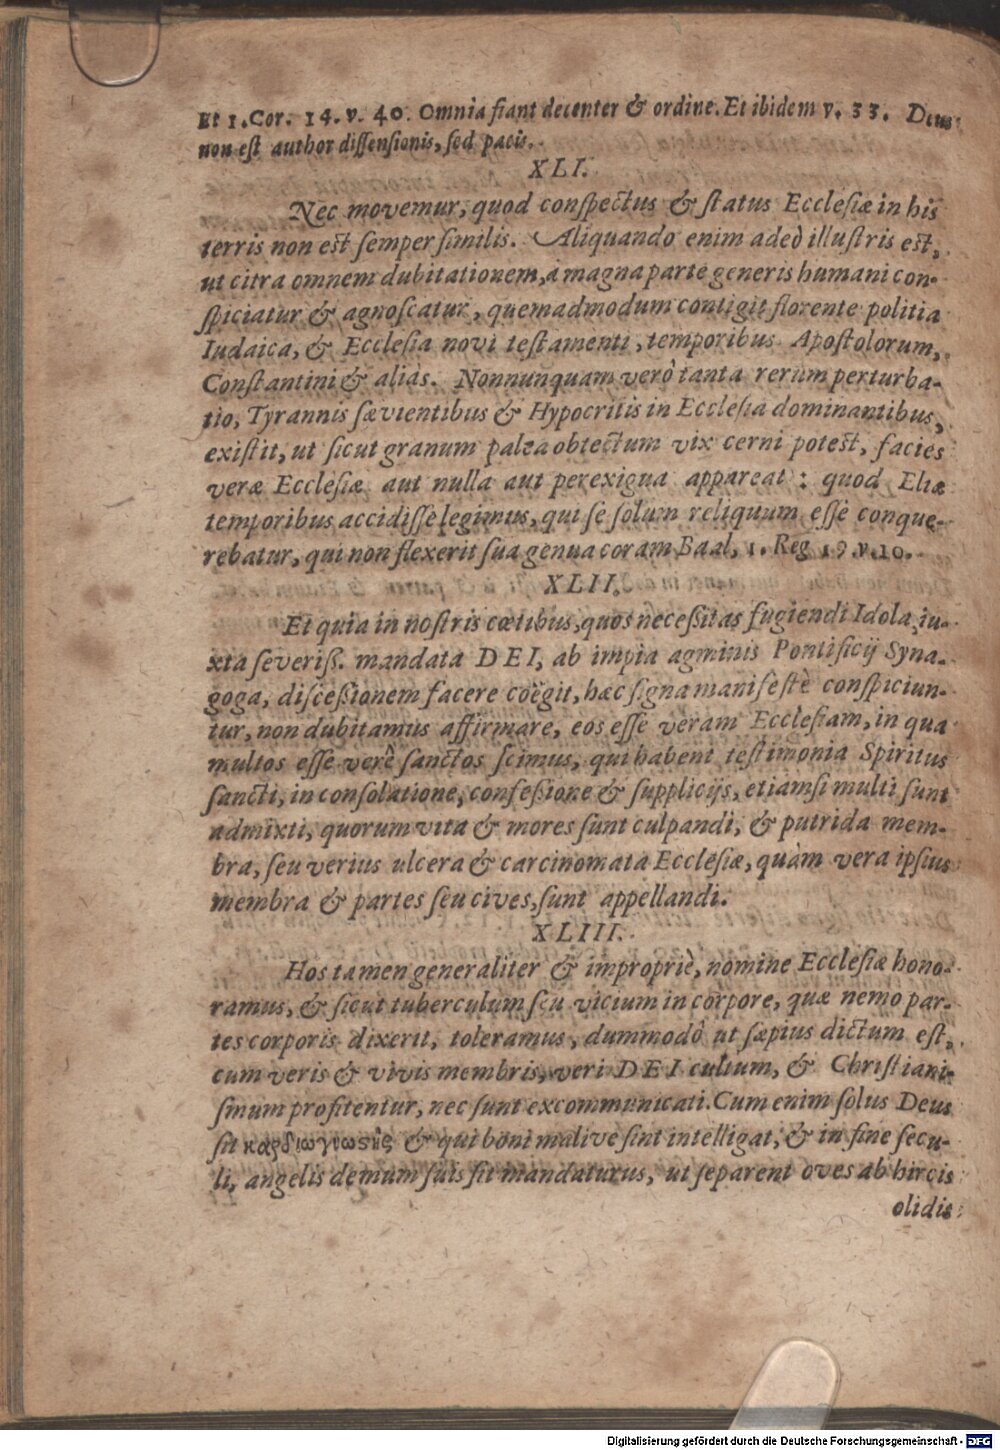 Et 1.Cor. 14. v. 40. Omnia fiant decenter & ordine. Et ibidem v. 33. Deus
non est author dissensionis, sed pacis.
XLI.
Nec movemur, quod conspectus & status Ecclesiæ in his
terris non est semper similis. Aliquando enim adeò illustris est,
ut citra omnem dubitationem, à magna parte generis humani con-
spiciatur & agnoscatur, quemadmodum contigit florente politia
Iudaica, & Ecclesia novi testamenti, temporibus Apostolorum,
Constantini & aliàs. Nonnunquam verò tanta rerum perturba-
tio, Tyrannis sævientibus & Hypocritis in Ecclesia dominantibus,
existit, ut sicut granum palea obtectum vix cerni potest, facies
veræ Ecclesiæ aut nulla aut perexigua appareat: quod Eliæ
temporibus accidisse legimus, qui se solum reliquum esse conque-
rebatur, qui non flexerit sua genua coram Baal, 1. Reg 19. v. 10.
XLII.
Et quia in nostris cœtibus, quos necessitas fugiendi Idola, iu-
xta severiss. mandata DEI, ab impia agminis Pontificij Syna-
goga, discessionem facere coëgit, hæc signa manifestè conspiciun-
tur, non dubitamus affirmare, eos esse veram Ecclesiam, in qua
multos esse verè sanctos scimus, qui habent testimonia Spiritus
sancti, in consolatione, confessione & supplicijs, etiamsi multi sunt
admixti, quorum vita & mores sunt culpandi, & putrida mem-
bra, seu verius ulcera & carcinomata Ecclesiæ, quàm vera ipsius
membra & partes seu cives, sunt appellandi.
XLIII.
Hos tamen generaliter & impropriè, nomine Ecclesiæ hono-
ramus, & sicut tuberculum seu vicium in corpore, quæ nemo par-
tes corporis dixerit, toleramus, dummodò ut sæpius dictum est,
cum veris & vivis membris, veri DEI cultum, & Christiani-
smum profitentur, nec sunt excommunicati. Cum enim solus Deus
sit καρδιωγνωστὴς & qui boni malive sint intelligat, & in fine secu-
li, angelis demum suis sit mandaturus, ut separent oves ab hircis
olidis
Digitalisierung gefördert durch die Deutsche Forschungsgemeinschaft - DFG